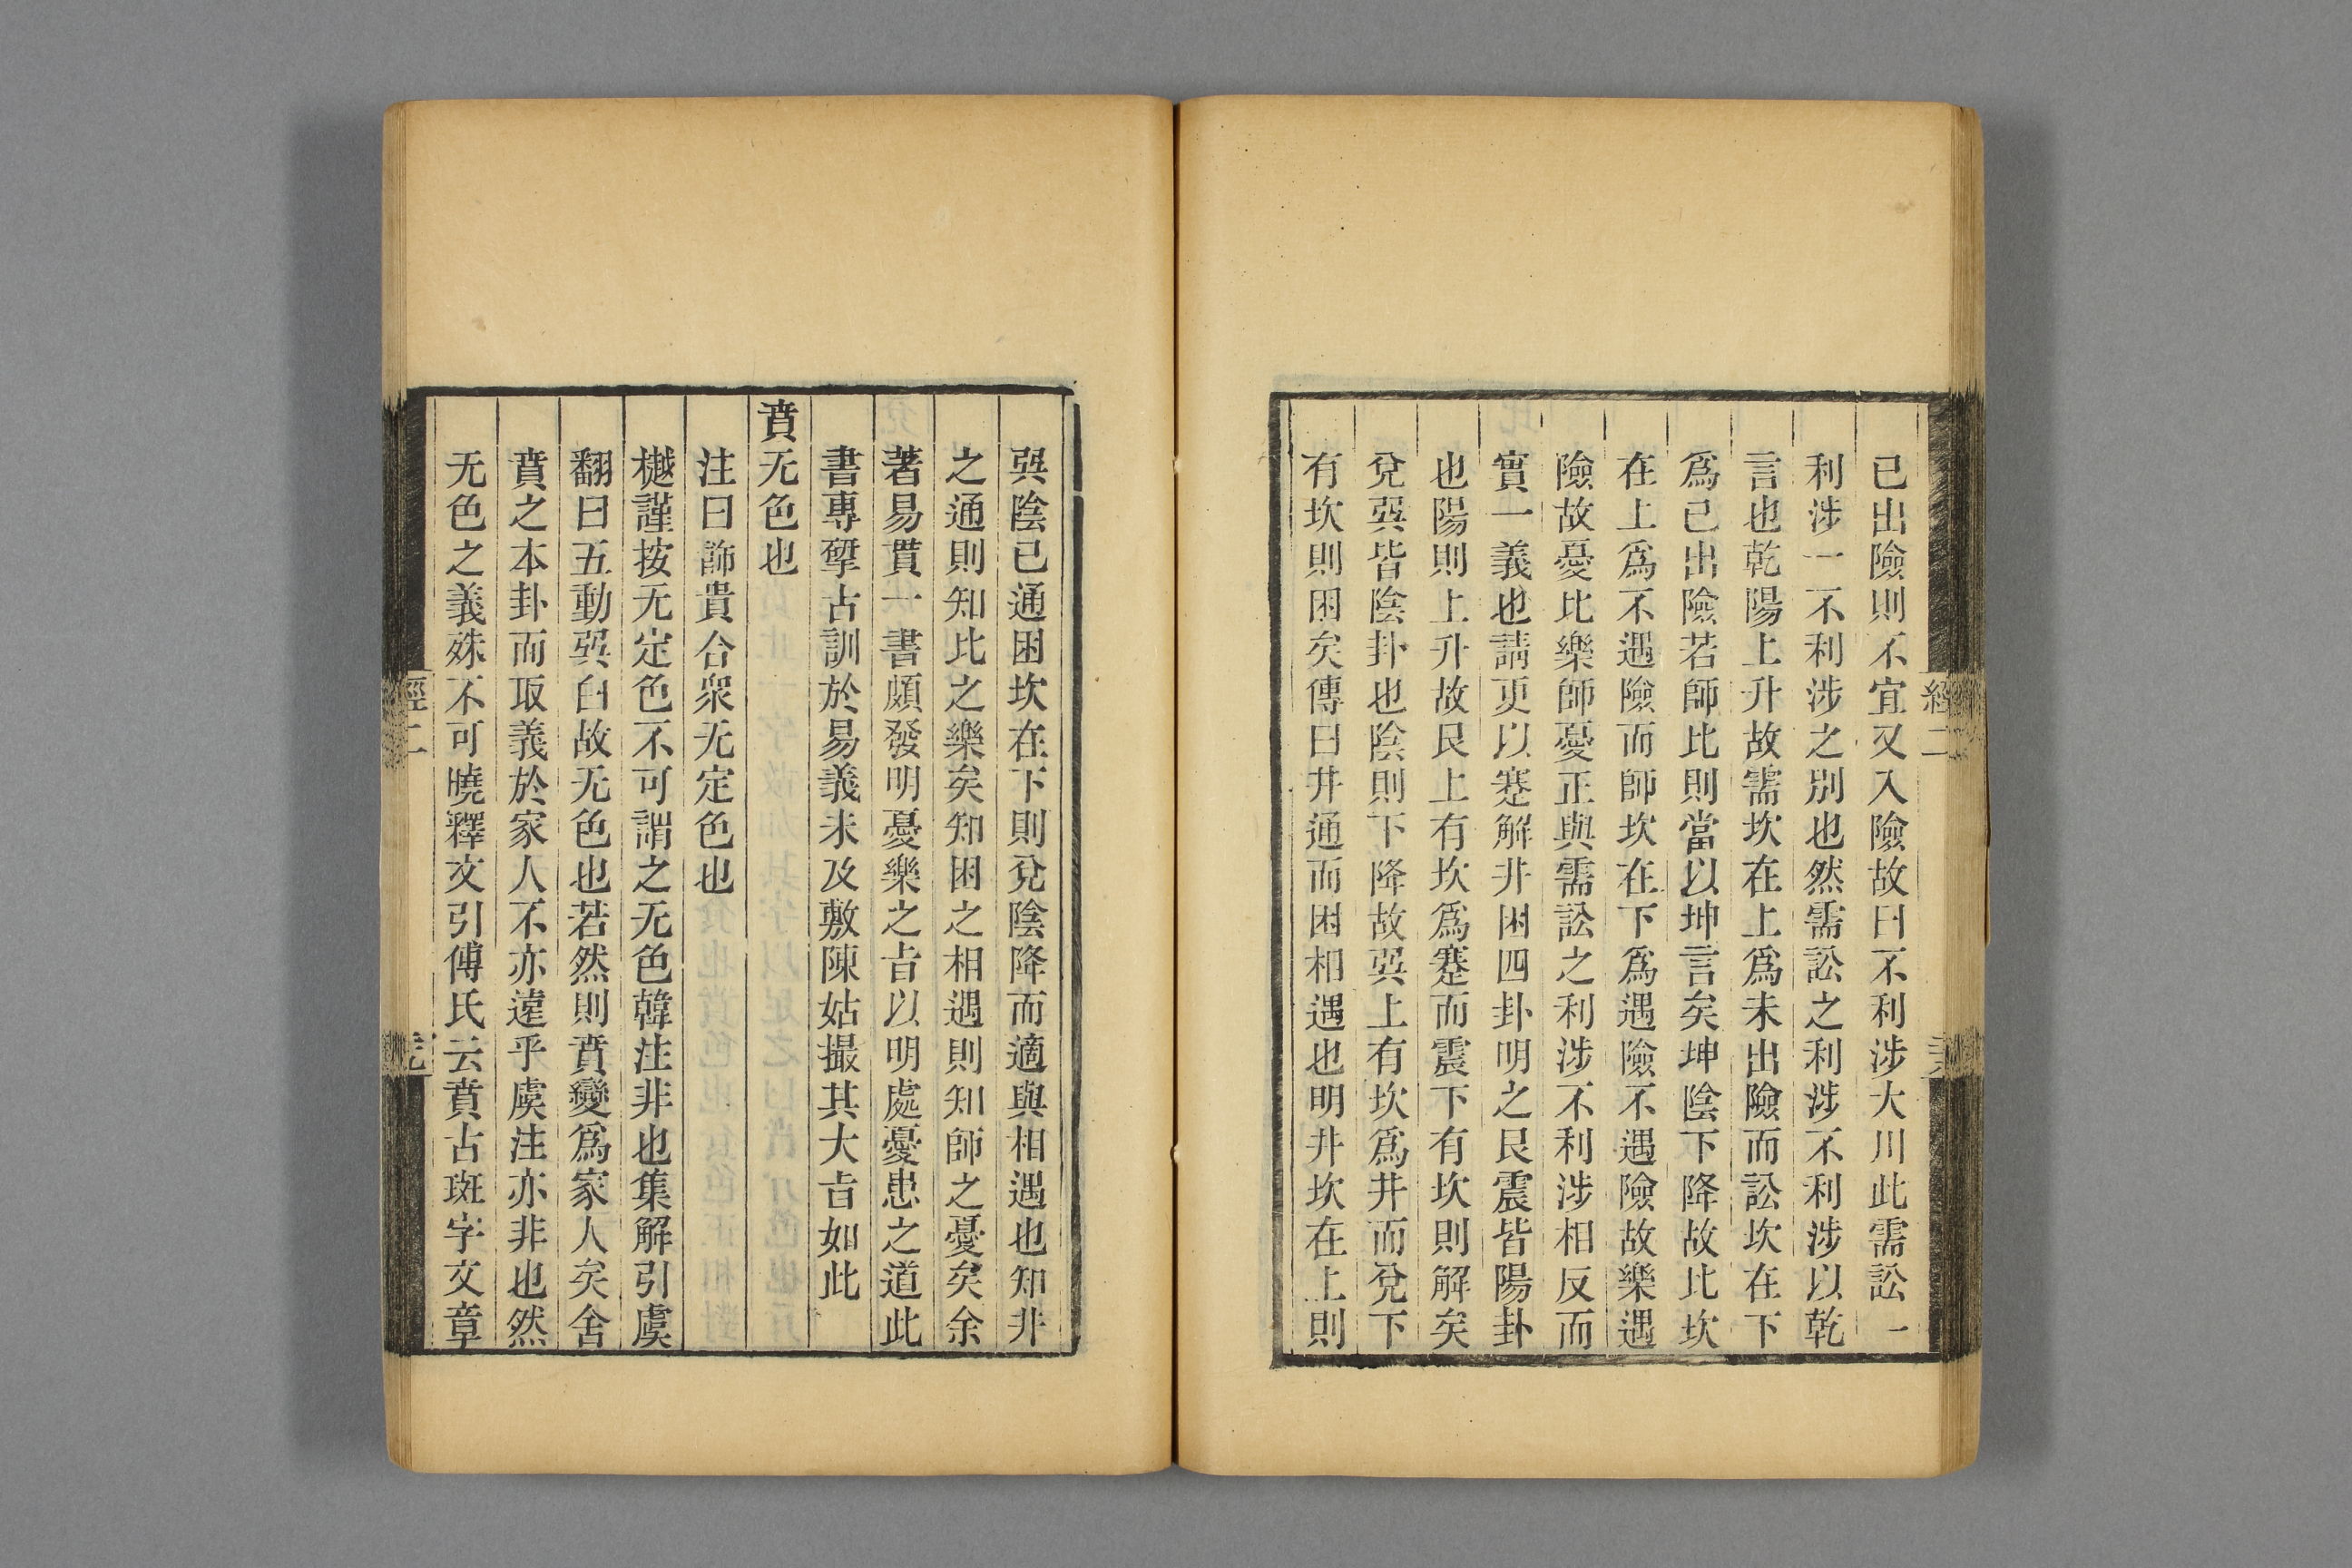 已出險則不宜又入險故曰不利涉大川此需訟一
利涉一不利涉之別也然需訟之利涉不利涉以乾
言也乾陽上升故需坎在上爲未出險而訟坎在下
爲已出險若師比則當以坤言矣坤陰下降故比坎
在上爲不遇險而師坎在下爲遇險不遇險故樂遇
險故憂比樂師憂正與需訟之利涉不利涉相反而
實一義也請更以蹇解井困四卦明之艮震皆陽卦
也陽則上升故艮上有坎爲蹇而震下有坎則解矣
兌巽皆陰卦也陰則下降故巽上有坎爲井而兌下
有坎則困矣傳曰井通而困相遇也明井坎在上則
經二
巽陰已通困坎在下則兌陰降而適與相遇也知井
之通則知比之樂矣知困之相遇則知師之憂矣余
著易貫一書頗發明憂樂之旨以明處憂患之道此
書專揅古訓於易義未及敷陳姑撮其大旨如此
賁无色也
注曰飾貴合衆无定色也
樾謹按无定色不可謂之无色韓注非也集解引虞
翻曰五動巽白故无色也若然則賁變爲家人矣舍
賁之本卦而取義於家人不亦遠乎虞注亦非也然
无色之義殊不可曉釋文引傅氏云賁古斑字文章
經二